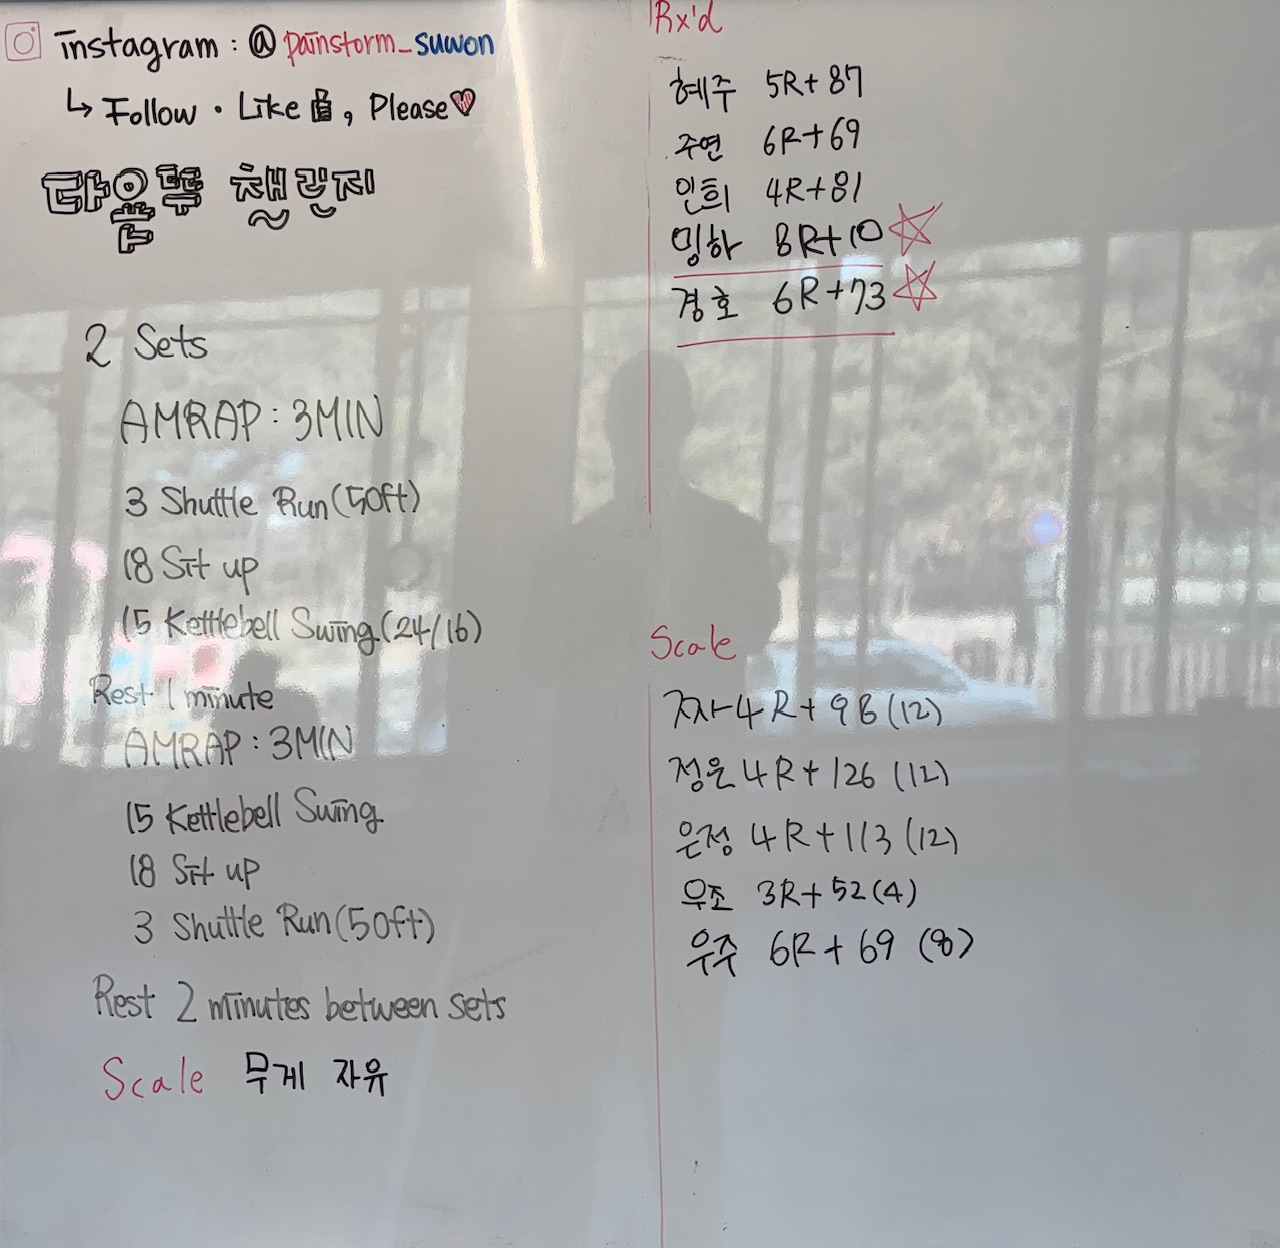 instagram : @painstorm_suwon
↳ Follow · Like 👍, Please♡
타울뚜 챌린지
2 Sets
AMRAP : 3MIN
3 Shuttle Run(50ft)
18 Sit up
15 Kettlebell Swing(24/16)
Rest 1 minute
AMRAP : 3MIN
15 Kettlebell Swing
18 Sit up
3 Shuttle Run(50ft)
Rest 2 minutes between sets
Scale 무게 자유
Rx'd
혜주 5R+87
주연 6R+69
인희 4R+81
밍하 8R+10 ☆
경호 6R+73 ☆
Scale
4R+98(12)
정운 4R+126 (12)
은정 4R+113 (12)
우조 3R+52(4)
우주 6R+69 (8)